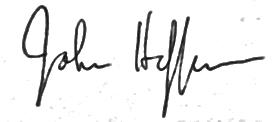 John Heffernan